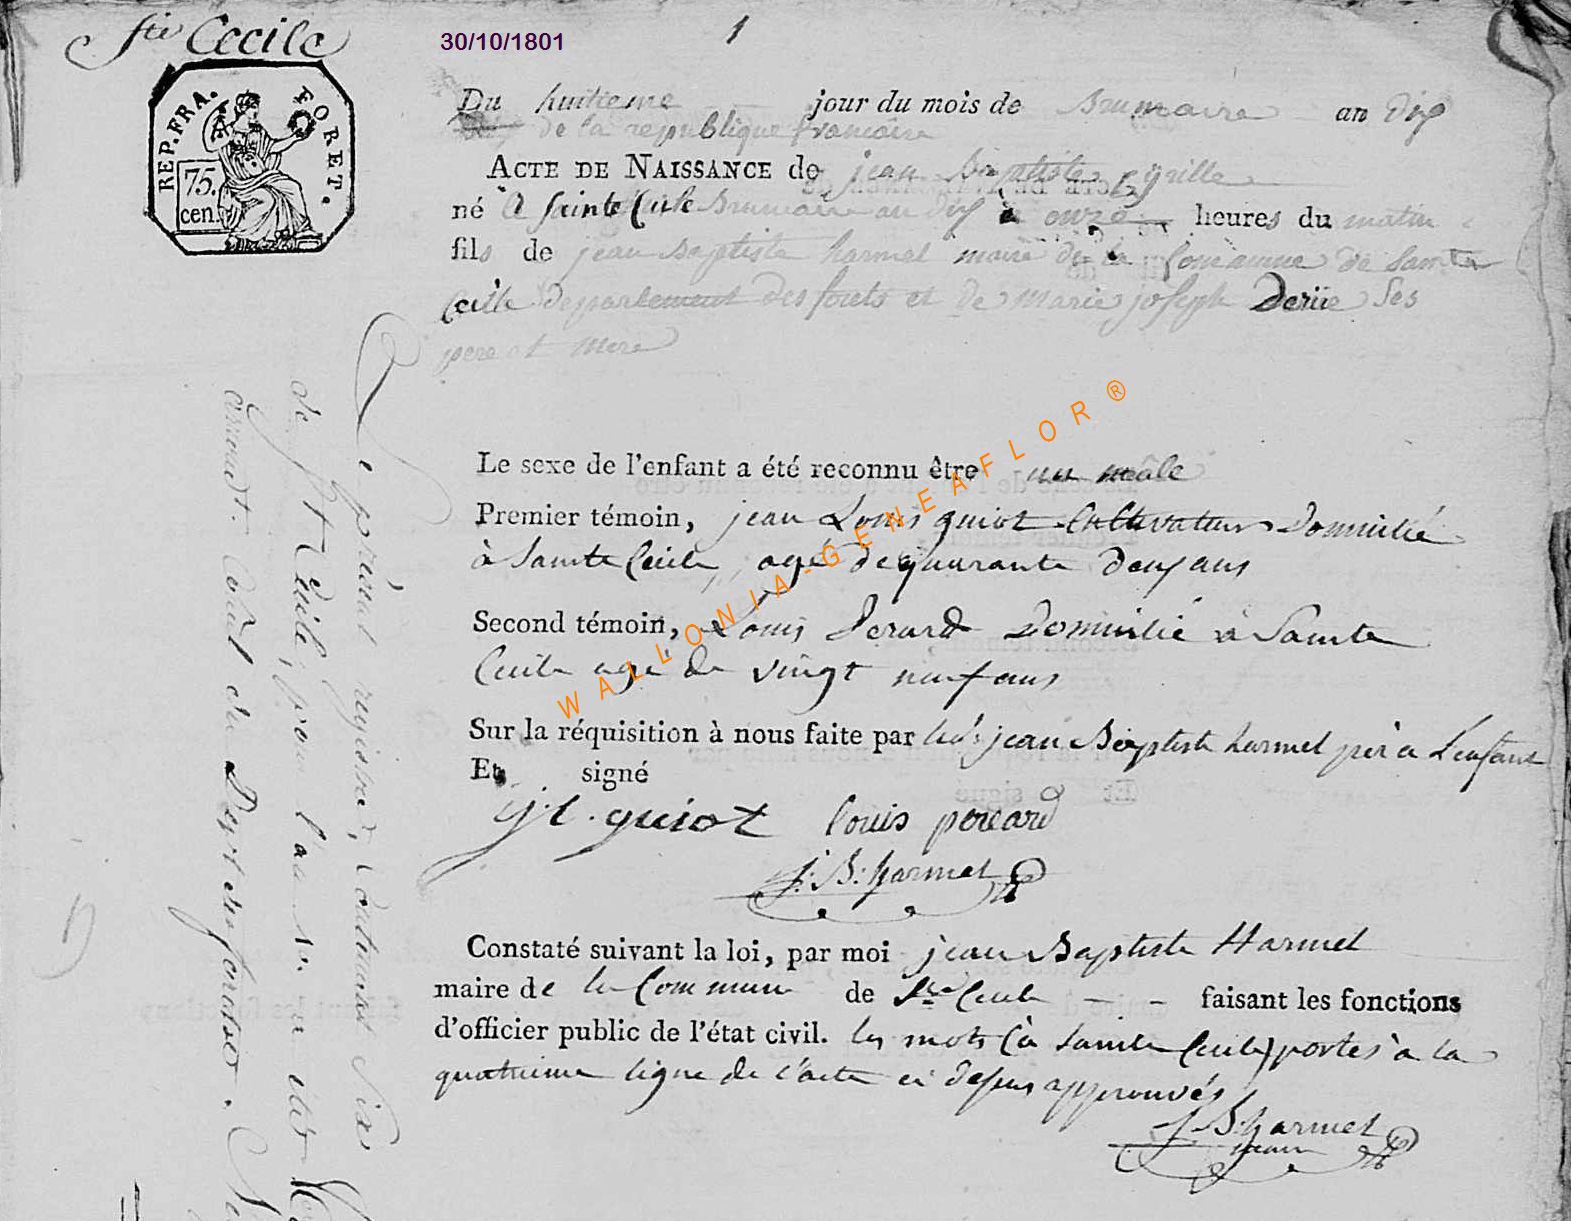 Ste Cecile
30/10/1801
1
REP. FRA. FORET.
75. cen.
Du huitieme jour du mois de Brumaire an dix
de la republique francaise
ACTE DE NAISSANCE de jean Baptiste cyrille
né à sainte Cecile Brumaire an dix à onze heures du matin
fils de jean Baptiste harmel maire de la Commune de Sainte
Cecile departement des forets et de marie joseph Ses
pere et mere
Le sexe de l'enfant a été reconnu être un male
Premier témoin, jean Louis guiot Cultivateur Domicilié
à Sainte Cecile, agé de quarante deux ans
Second témoin, Louis Perard Domicilié à Sainte
Cecile agé de vingt neuf ans
Sur la réquisition à nous faite par jean Baptiste harmel pere a L'enfant
Et signé
j. l. guiot louis pereard
J: B: harmel
Constaté suivant la loi, par moi jean Baptiste Harmel
maire de la Commune de Ste Cecile - - faisant les fonctions
d'officier public de l'état civil. les mots (à sainte Cecile) portés à la
quatrieme ligne de l'acte ci depus approuvés
J. B: harmel
maire
Le présent registre, contenant six
de Ste Cecile, pour l'an 10. a été
du Dept des forets.
WALLONIA-GENEAFLOR ®